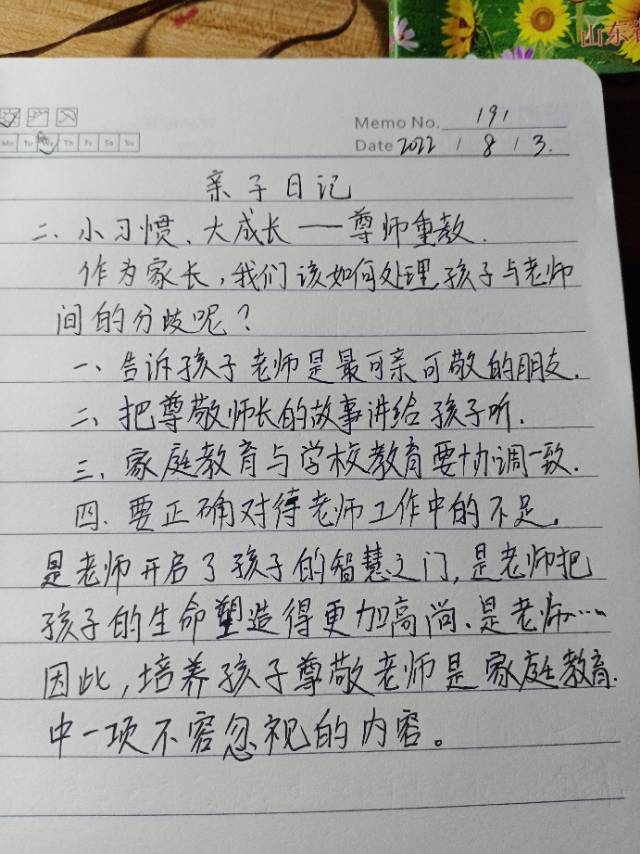 山东省
Memo No. 191
Mo Tu We Th Fr Sa Su
Date 2022 / 8 / 3.
亲子日记
二、小习惯、大成长——尊师重教.
作为家长,我们该如何处理孩子与老师
间的分歧呢?
一、告诉孩子老师是最可亲可敬的朋友.
二、把尊敬师长的故事讲给孩子听.
三、家庭教育与学校教育要协调一致.
四、要正确对待老师工作中的不足。
是老师开启了孩子的智慧之门,是老师把
孩子的生命塑造得更加高尚、是老师…
因此,培养孩子尊敬老师是家庭教育.
中一项不容忽视的内容。